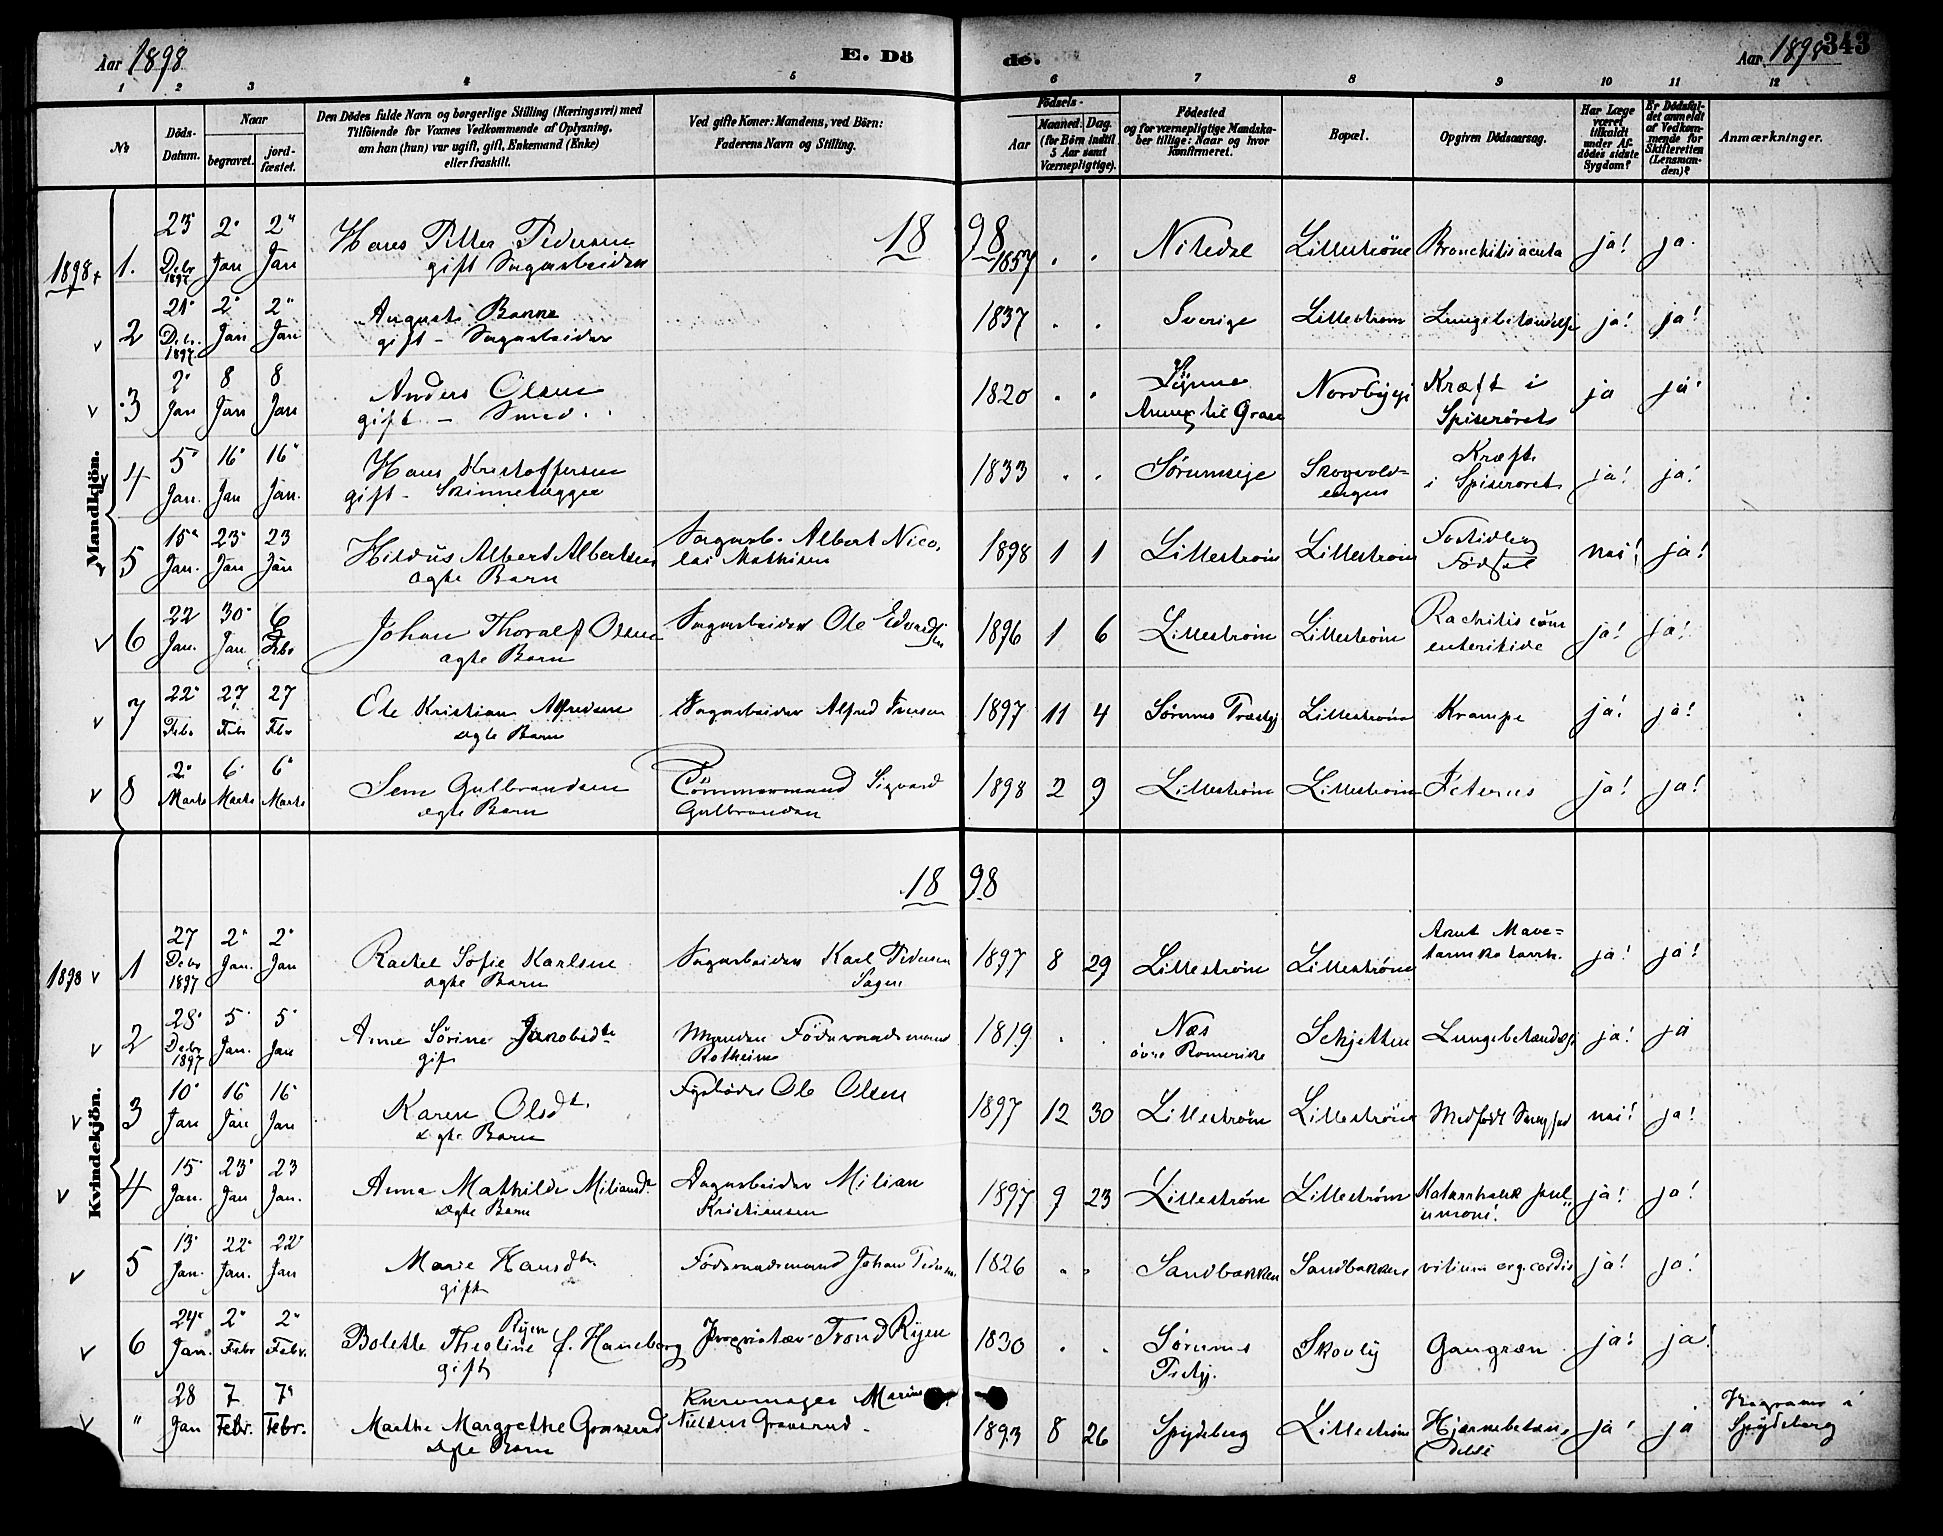 Aar 1898
E. Dö
de.
Aar 1898
343
1 2 3 4 5 6 7 8 9 10 11 12
No
Döds-
Datum.
Naar
begravet.
jord-
fæstet.
Den Dödes fulde Navn og borgerlige Stilling (Næringsvei) med
Tilföiende for Voxnes Vedkommende af Oplysning,
om han (hun) var ugift, gift, Enkemand (Enke)
eller fraskilt.
Ved gifte Koner: Mandens, ved Börn:
Faderens Navn og Stilling.
Födsels-
Aar
Maaned. Dag.
(for Börn indtil
5 Aar samt
Værnepligtige).
Födested
og for værnepligtige Mandska-
ber tillige: Naar og hvor
konfirmeret.
Bopæl.
Opgiven Dödsaarsag.
Har Læge
været
tilkaldt
under Af-
dödes sidste
Sygdom?
Er Dödsfal-
det anmeldt
af Vedkom-
mende for
Skifteretten
(Lensman-
den)?
Anmærkninger.
Mandkjön.
18 98
1898 1. 23 Debr 1897 2 Jan 2 Jan
Hans Petter Pedersen
gift Sagarbeider
1857 Nitedal Lilleström Bronchitis acuta ja! ja.
2 21 Debr. 1897 2 Jan 2 Jan
August Banne
gift - Sagarbeider
1837 Sverige Lillestrøm Lungebetændelse ja! ja!
3 2 Jan 8 Jan 8 Jan
Anders Olsen
gift - Smed
1820 Annex til Grave Nordbyeje Kræft i
Spiserøret ja ja
4 5 Jan. 16 Jan 16 Jan.
Hans Kristoffersen
gift -
1833 Sørumseje Skogvold-
engen Kræft
i Spiserøret ja! ja!
5 15 Jan. 23 Jan 23 Jan
Hildus Albert Albertsen
ægte Barn
Sagarb. Albert Nico,
lai Mathisen
1898 1 1 Lillestrøm Lillestrøm Fortidleg
Fødsel nei! ja!
6 22 Jan. 30 Jan 6 Febr
Johan Thoralf Olsen
ægte Barn
Sagarbeider Ole Edvardsen
1896 1 6 Lillestrøm Lillestrøm Rachitis cum
enteritide ja! ja!
7 22 Febr 27 Febr 27 Febr
Ole Kristian Alfredsen
ægte Barn
Sagarbeider Alfred Iversen
1897 11 4 Sørums Præstgj Lillestrøm Krampe ja! ja!
8 2 Marts 6 Marts 6 Marts
Sem Gulbrandsen
ægte Barn
Tömmermand Sigvard
Gulbrandsen
1898 2 9 Lillestrøm Lillestrøm Icterus ja! ja!
Kvindekjön.
18 98
1898 1 27 Debr 1897 2 Jan. 2 Jan
Rachel Sofie Karlsen
ægte Barn
Sagarbeider Karl Pedersen
Sagen
1897 8 29 Lillestrøm Lillestrøm Akut Mave=
tarmkatarrh. ja! ja!
2 28 Debr 1897 5 Jan. 5 Jan
Anne Sörine Jakobsdtr
gift
Manden Föderaadsmand
Rotheim
1819 Næs
övre Romerike Schjetten Lungebetændelse ja! ja
3 10 Jan 16 Jan 16 Jan
Karen Olsdt.
ægte Barn
Fyrbøder Ole Olsen
1897 12 30 Lillestrøm Lillestrøm Medfödt nei! ja!
4 15 Jan. 23 Jan 23 Jan.
Anna Mathilde Miliansd.
ægte Barn
Dagarbeider Milian
Kristiansen
1897 9 23 Lillestrøm Lillestrøm Katarrhalsk pneu
umoni! ja! ja!
5 13 Jan. 22 Jan. 22 Jan
Marie Hansdtr
gift
Föderaadsmand Johan Pedersen
1826 Sandbakken Sandbakken vitium org. cordis ja! ja!
6 24 Jan. 2 Febr 2 Febr.
Ryen
Bolette Theoline f. Haneborg
gift
Proprietær Trond Ryen
1830 Sørums
Prstgj. Skovly Gangræn ja! ja!
" 28 Jan 7 Febr. 7 Febr.
Marthe Margrethe Graverud
ægte Barn
Marius
Nielsen Graverud.
1893 8 26 Spydeberg Lillestrøm Hjernebetæn-
delse ja! ja
Begraves i
Spydeberg